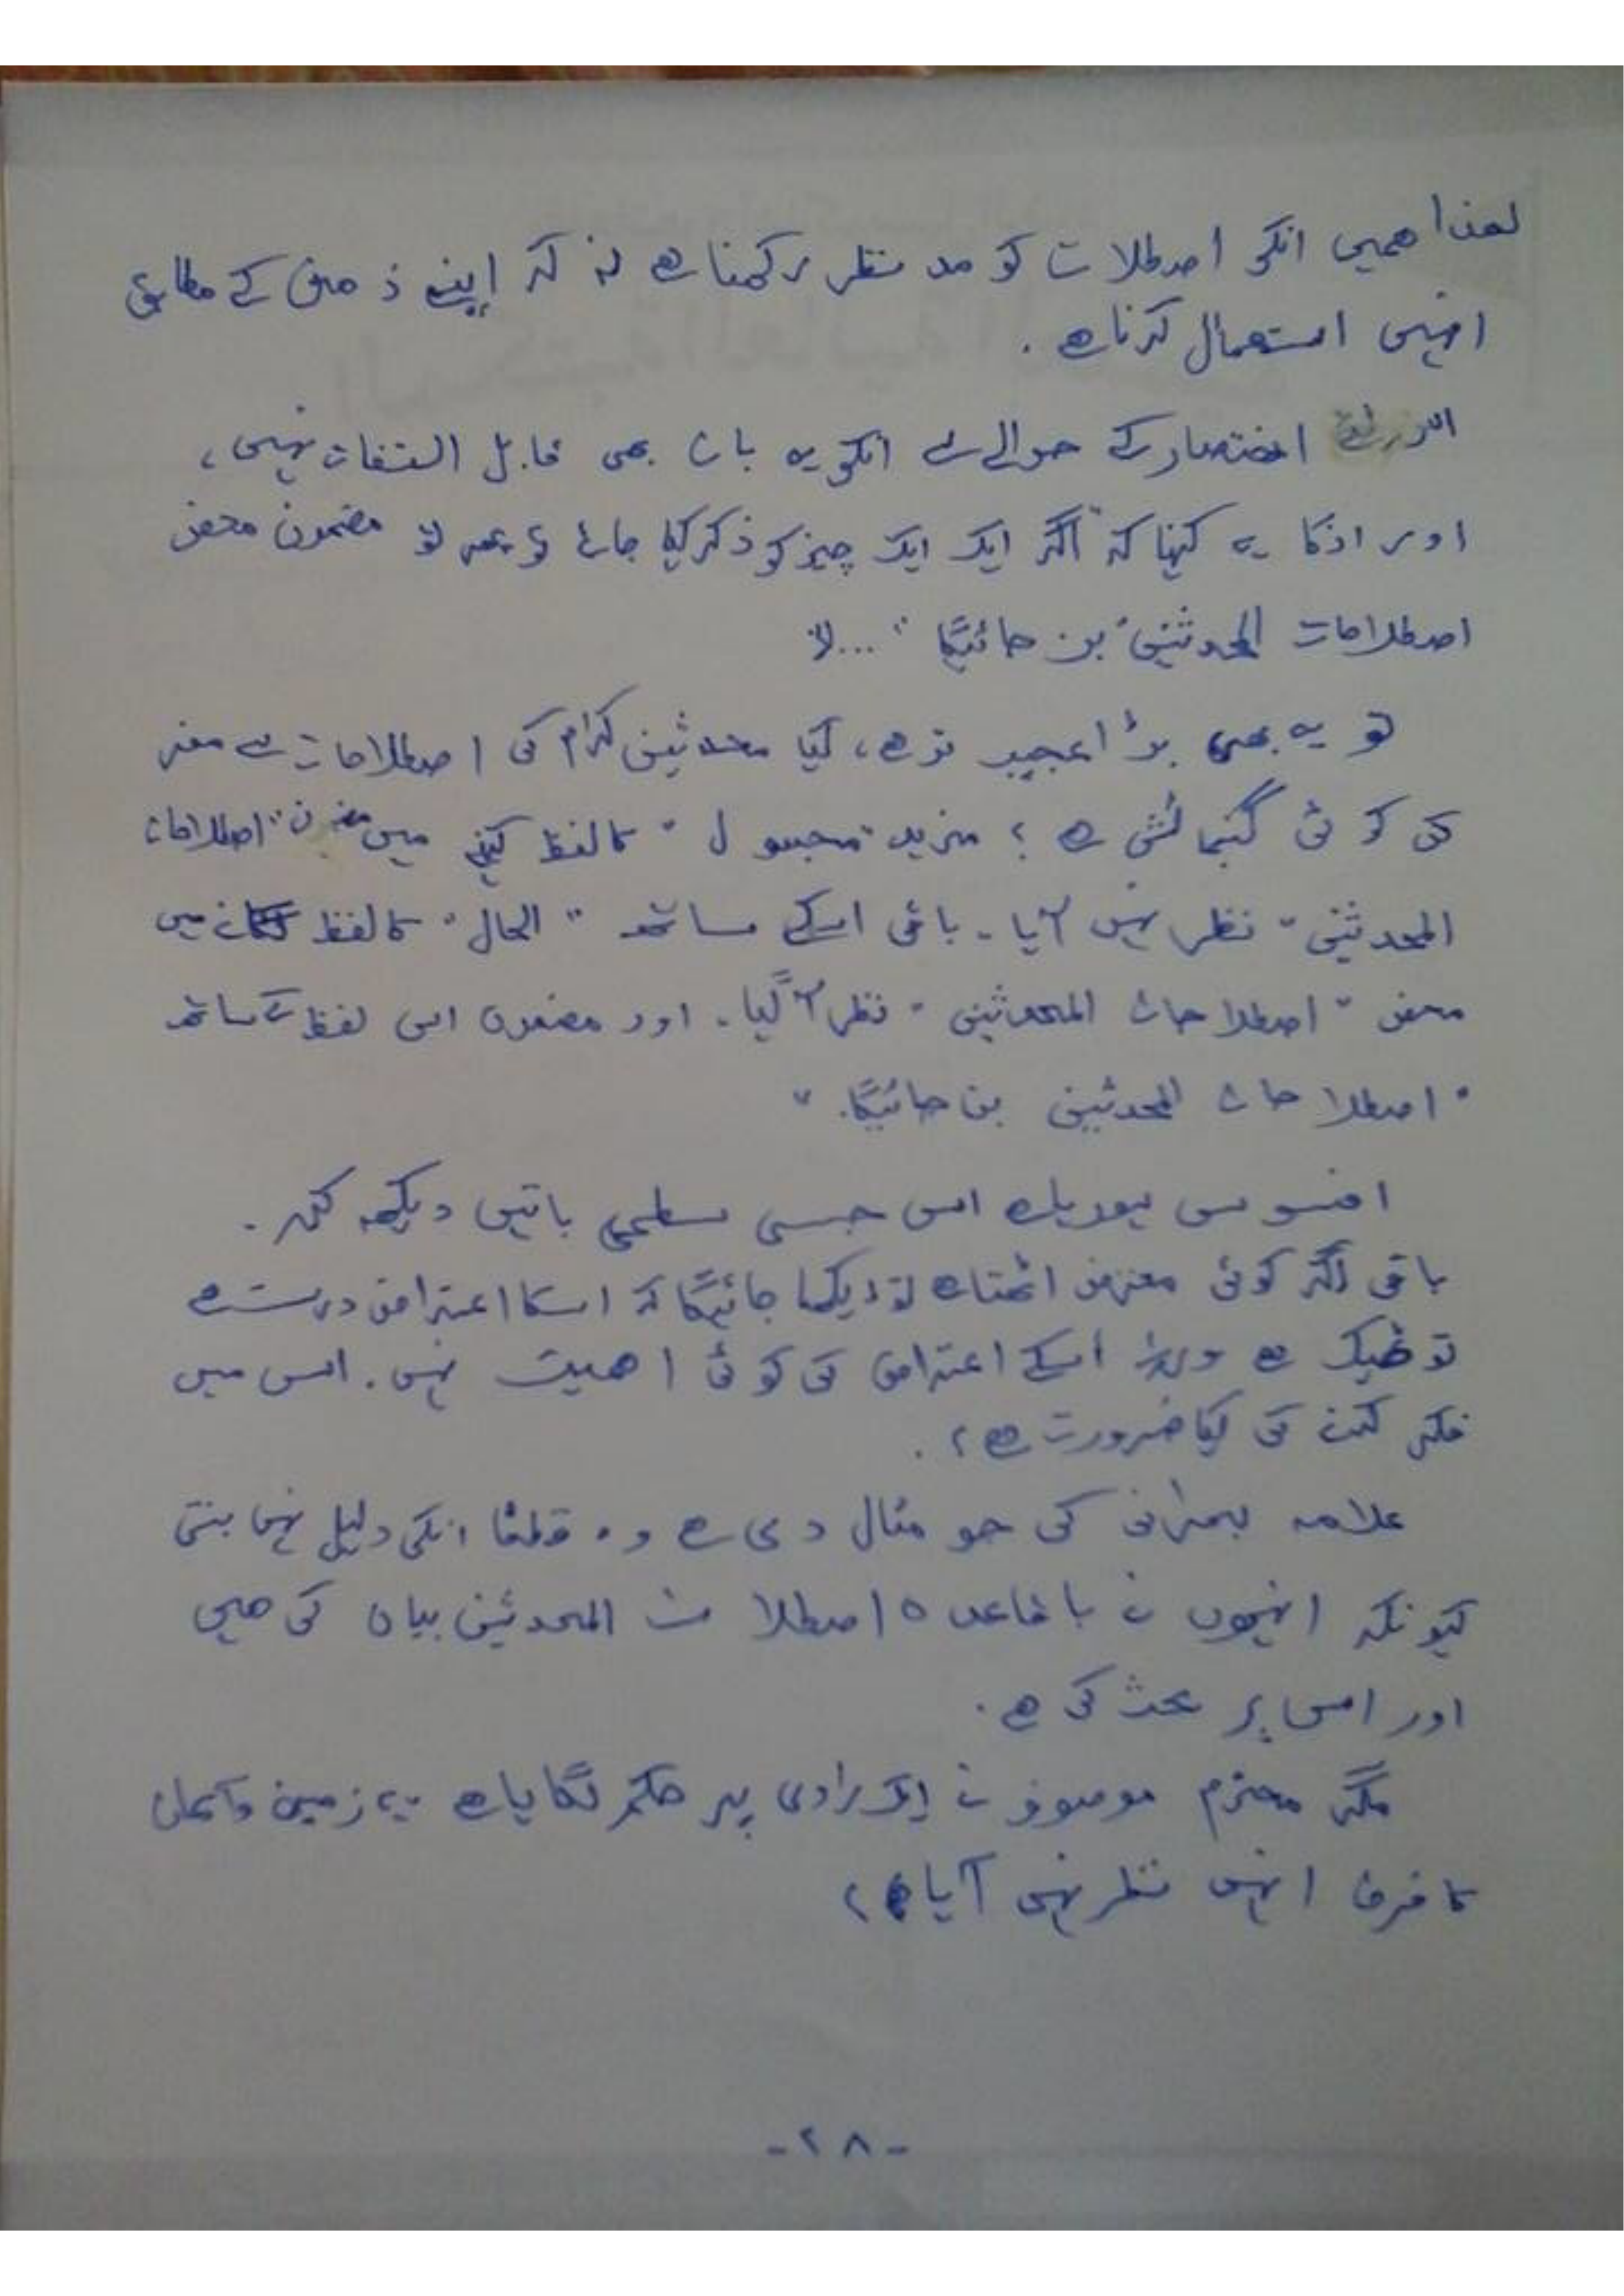 لھذا ھمیں انکی اصطلات کو مد نظر رکھنا ھے نہ کہ اپنے ذھن کے مطابق
انہیں استعمال کرنا ھے .
اختصار کے حوالے سے انکی یہ بات بھی قابل التفات نہیں ،
اور انکا یہ کہنا کہ "اگر ایک ایک چیز کو ذکر کیا جائے تو پھر تو مضمون محض
اصطلاحات المحدثین بن جائیگا " ...
تو یہ بھی بڑا عجیب تر ھے ، کیا محدثین کرام کی اصطلاحات سے مفر
کی کوئی گنجائش ھے ؟ مزید "مجہول " کا لفظ کہنے میں "اصطلاحات
المحدثین " نظر نہیں آیا - باقی اسکے ساتھ " الحال " کا لفظ میں
محض " اصطلاحات المحدثین " نظر آگیا . اور مضمون اس لفظ کے ساتھ
" اصطلاحات المحدثین بن جائیگا . "
افسوس ہورہا ہے اس جیسی سطحی باتیں دیکھ کر .
باقی اگر کوئی معترض اٹھتا ھے تو دیکھا جائیگا کہ اسکا اعتراض درست ھے
تو ٹھیک ھے ورنہ اسکے اعتراض کی کوئی اھمیت نہیں . اس میں
فکر کرنے کی کیا ضرورت ھے ؟ .
علامہ کی جو مثال دی ھے وہ قطعًا انکی دلیل نہیں بنتی
کیونکہ انہوں نے باقاعدہ اصطلات المحدثین بیان کی ھیں
اور اس پر بحث کی ھے .
مگر محترم موصوف نے ایک راوی پر حکم لگایا ھے . یہ زمین وآسمان
کا فرق انہیں نظر نہیں آیا ؟
- ۲۸ -